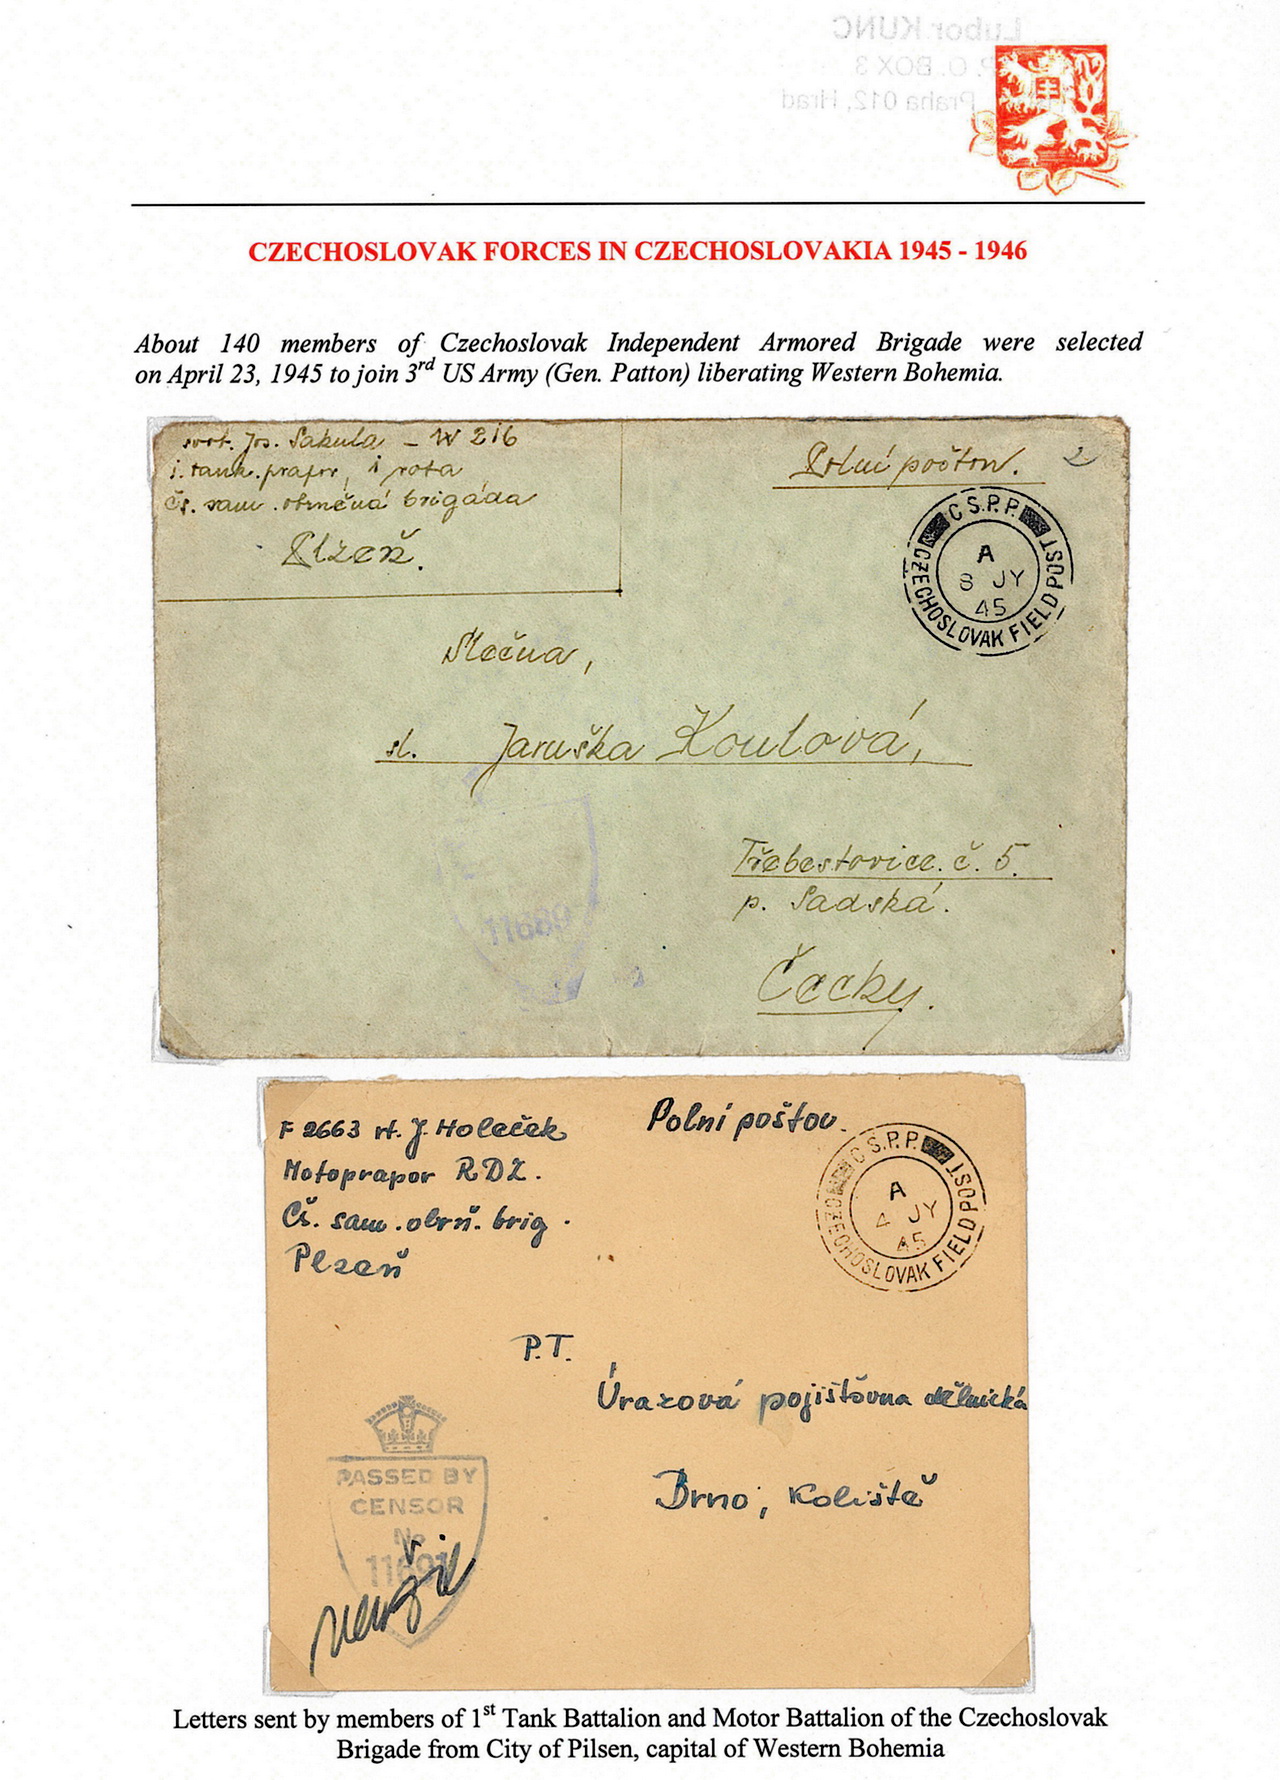 Lubor KUNC
P. O. BOX 3
Praha 012, Hrad
CZECHOSLOVAK FORCES IN CZECHOSLOVAKIA 1945 - 1946
About 140 members of Czechoslovak Independent Armored Brigade were selected
on April 23, 1945 to join 3rd US Army (Gen. Patton) liberating Western Bohemia.
Jos. Sakula - W 216
1. tank. prapor, 1 rota
čs. sam. obrněná brigáda
Plzeň.
Polní poštou.
2
C S.P.P.
A
8 JY
45
CZECHOSLOVAK FIELD POST
Slečna,
sl. Jaruška Koulová,
Třebestovice. č. 5.
p. Sadská.
11689
Čechy.
F 2663 rt. J. Holeček
Motoprapor RDZ.
Čs. sam. obrň. brig.
Plzeň
Polní poštou.
C S.P.P.
A
4 JY
45
CZECHOSLOVAK FIELD POST
P.T.
Úrazová pojišťovna dělnická
Brno, Koliště
PASSED BY
CENSOR
No
11691
Letters sent by members of 1st Tank Battalion and Motor Battalion of the Czechoslovak
Brigade from City of Pilsen, capital of Western Bohemia